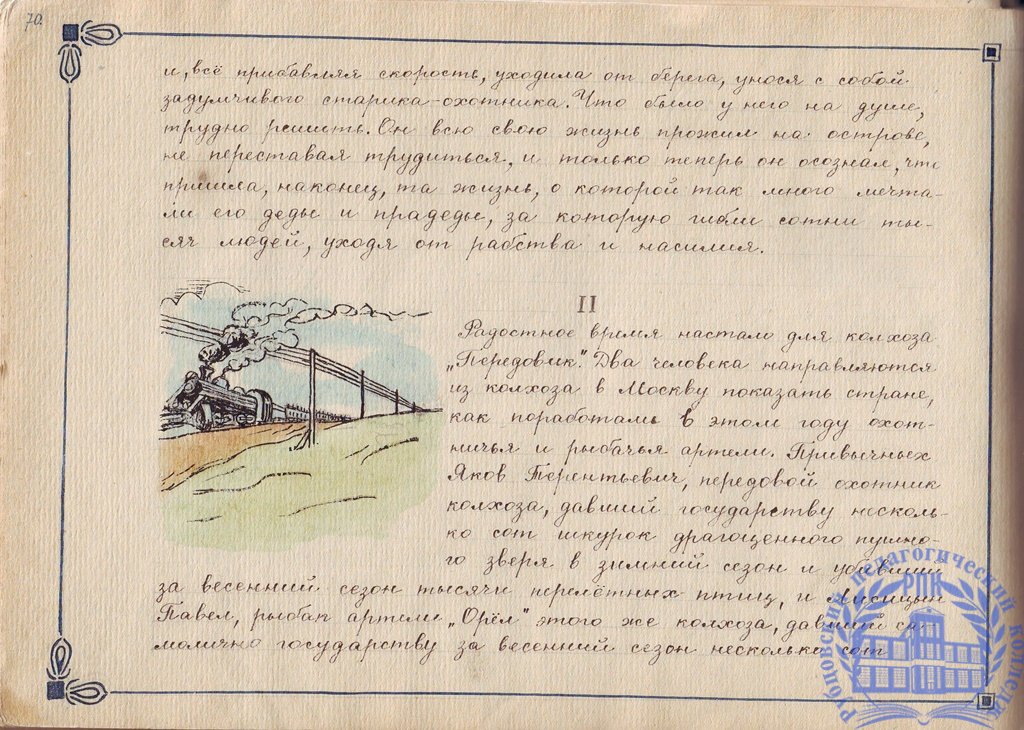 70.
и, всё прибавляя скорость, уходила от берега, унося с собой
задумчивого старика-охотника. Что было у него на душе,
трудно решить. Он всю свою жизнь прожил на острове,
не переставая трудиться, и только теперь он осознал, что
пришла, наконец, та жизнь, о которой так много мечта-
ли его деды и прадеды, за которую гибли сотни ты-
сяч людей, уходя от рабства и насилия.
II
Радостное время настало для колхоза
„Передовик". Два человека направляются
из колхоза в Москву показать стране,
как поработали в этом году охот-
ничья и рыбачья артели. Привычных
Яков Терентьевич, передовой охотник
колхоза, давший государству несколь-
ко сот шкурок драгоценного пушно-
го зверя в зимний сезон и убивший
за весенний сезон тысячи перелётных птиц, и Лисицын
Павел, рыбак артели „Орёл" этого же колхоза, давший са-
молично государству за весенний сезон несколько сот
Рубцовский педагогический колледж
РПК